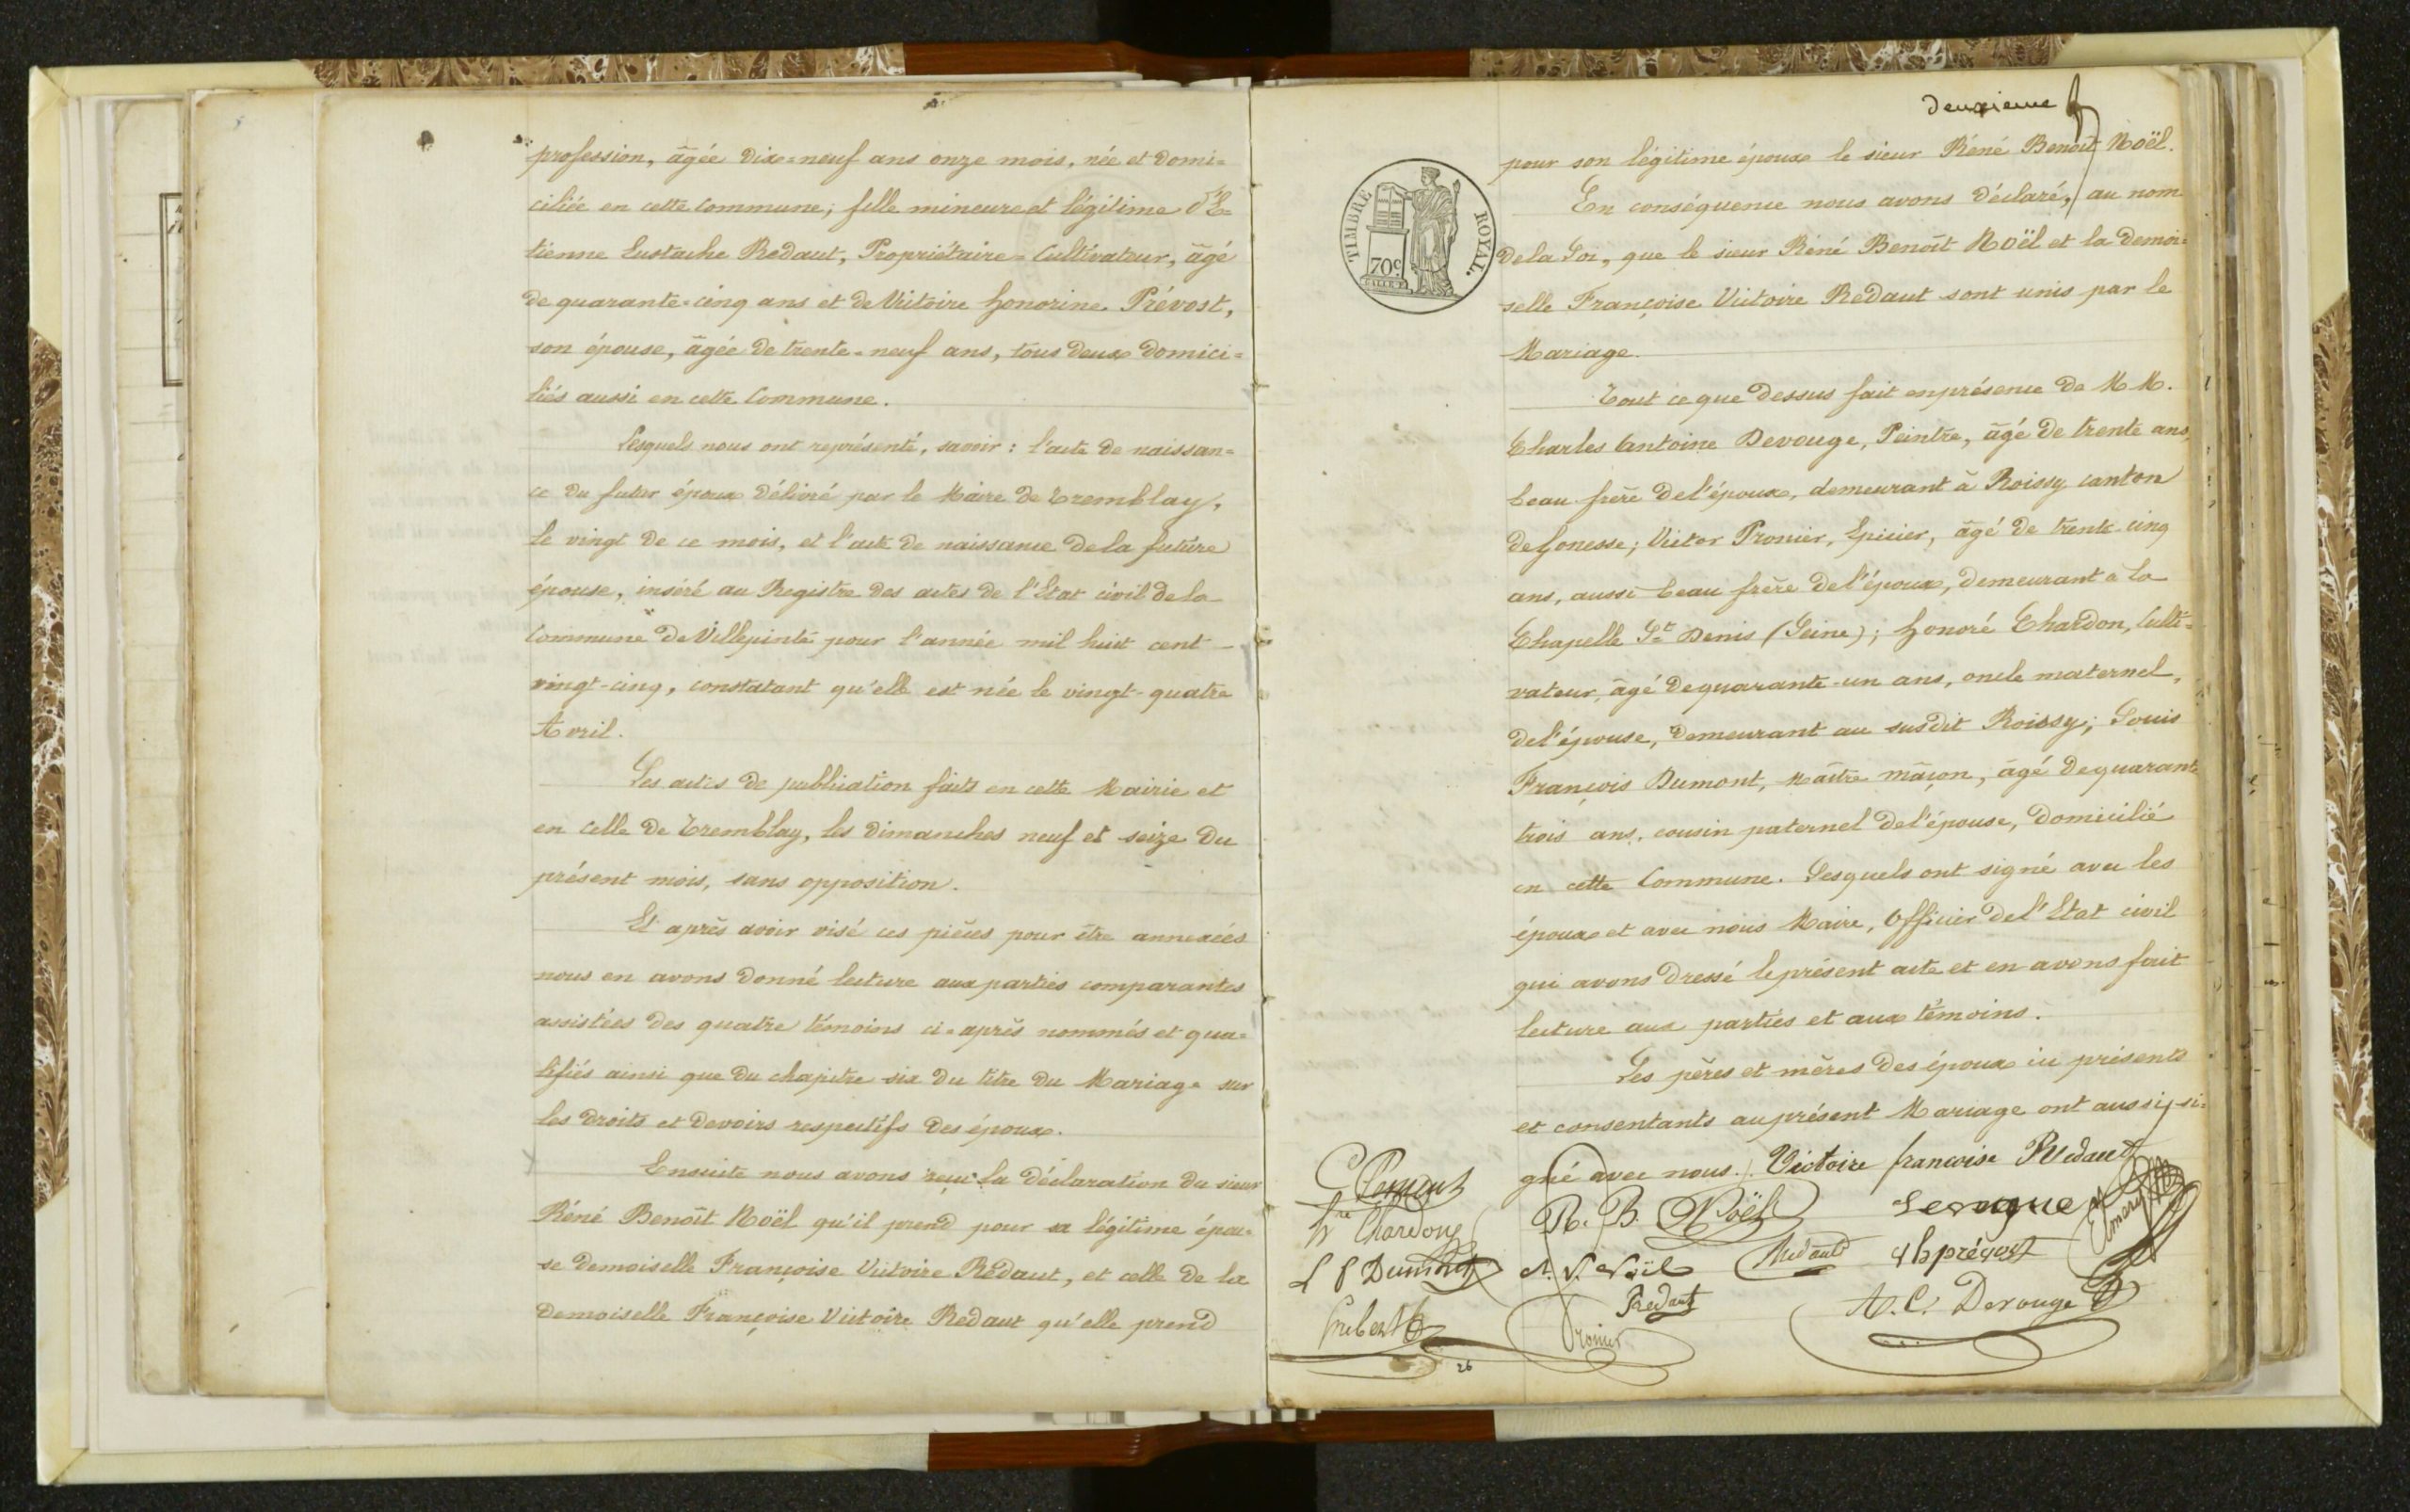 profession, âgée dix=neuf ans onze mois, née et domi=
ciliée en cette Commune; fille mineure et légitime d'E=
tienne Eustache Redaut, Propriétaire=Cultivateur, âgé
de quarante=cinq ans et de Victoire honorine Prévost,
son épouse, âgée de trente=neuf ans, tous deux domici=
liés aussi en cette Commune.
Lesquels nous ont représenté, savoir: l'acte de naissan=
ce du futur époux délivré par le Maire de Tremblay,
le vingt de ce mois, et l'acte de naissance de la future
épouse, inséré au Registre des actes de l'Etat civil de la
Commune de Villepinte pour l'année mil huit cent
vingt-cinq, constatant qu'elle est née le vingt-quatre
Avril.
Les actes de publication faits en cette Mairie et
en celle de Tremblay, les dimanches neuf et seize du
présent mois, sans opposition.
Et après avoir visé ces pièces pour être annexées
nous en avons donné lecture aux parties comparantes
assistées des quatre témoins ci=après nommés et qua=
lifiés ainsi que du chapitre six du titre du Mariage sur
les droits et devoirs respectifs des époux.
Ensuite nous avons reçu la déclaration du sieur
Réné Benoît Noël qu'il prend pour sa légitime épou=
se demoiselle Françoise Victoire Redaut, et celle de la
demoiselle Françoise Victoire Redaut qu'elle prend
deuxieme
TIMBRE ROYAL.
70c
pour son légitime époux le sieur Réné Benoît Noël.
En conséquence nous avons déclaré, au nom
de la Loi, que le sieur Réné Benoît Noël et la demoi=
selle Françoise Victoire Redaut sont unis par le
Mariage.
Tout ce que dessus fait en présence de M.M.
Charles Antoine Devouge, Peintre, âgé de trente ans,
beau frère de l'époux, demeurant à Roissy canton
de Gonesse; Victor Pronier, Epicier, âgé de trente-cinq
ans, aussi beau frère de l'époux, demeurant à la
Chapelle St Denis (Seine); honoré Chardon, Culti=
vateur, âgé de quarante-un ans, oncle maternel,
de l'épouse, demeurant au susdit Roissy; Louis
François Dumont, Maître maçon, âgé de quarante
trois ans, cousin paternel de l'épouse, domicilié
en cette Commune. Lesquels ont signé avec les
époux et avec nous Maire, Officier de l'Etat civil
qui avons dressé le présent acte et en avons fait
lecture aux parties et aux témoins.
Les pères et mères des époux ici présents
et consentants au présent Mariage ont aussi si=
gné avec nous. Victoire francoise Redaut
hre Chardon R. B. Noël
L F Dumont Noël Redaut prévost
Redaut A. C. Devouge
Pronier
26